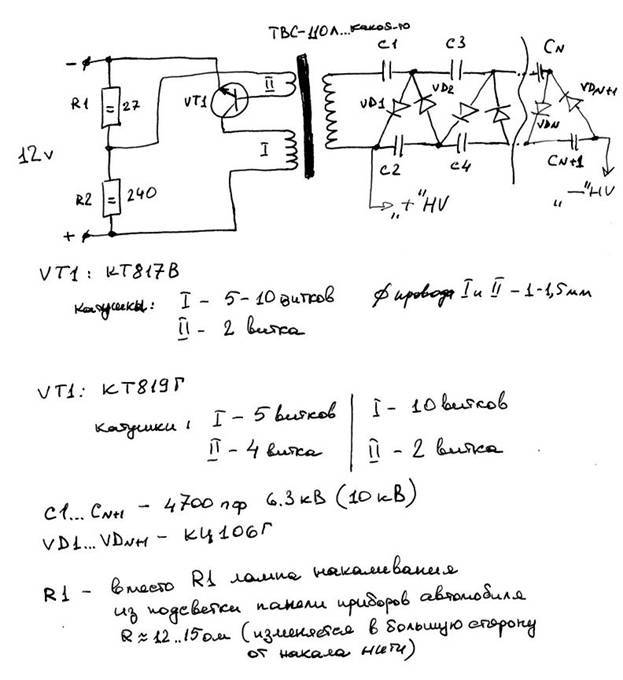 ТВС-110Л... какой-то
C1
C3
CN
-
R1
27
VT1
II
VD1
VD2
VDN
VDN+1
12v
I
C2
C4
CN+1
R2
240
„+" HV
„—" HV
+
VT1: КТ817В
катушки: I - 5-10 витков ϕ провода I и II - 1-1,5мм
II - 2 витка
VT1: КТ819Г
катушки: I - 5 витков | I - 10 витков
II - 4 витка | II - 2 витка
C1...CN+1 - 4700 пф 6.3 кВ (10 кВ)
VD1...VDN+1 - КЦ106Г
R1 - вместо R1 лампа накаливания
из подсветки панели приборов автомобиля
R≈12..15ом (изменяется в большую сторону
от накала нити)